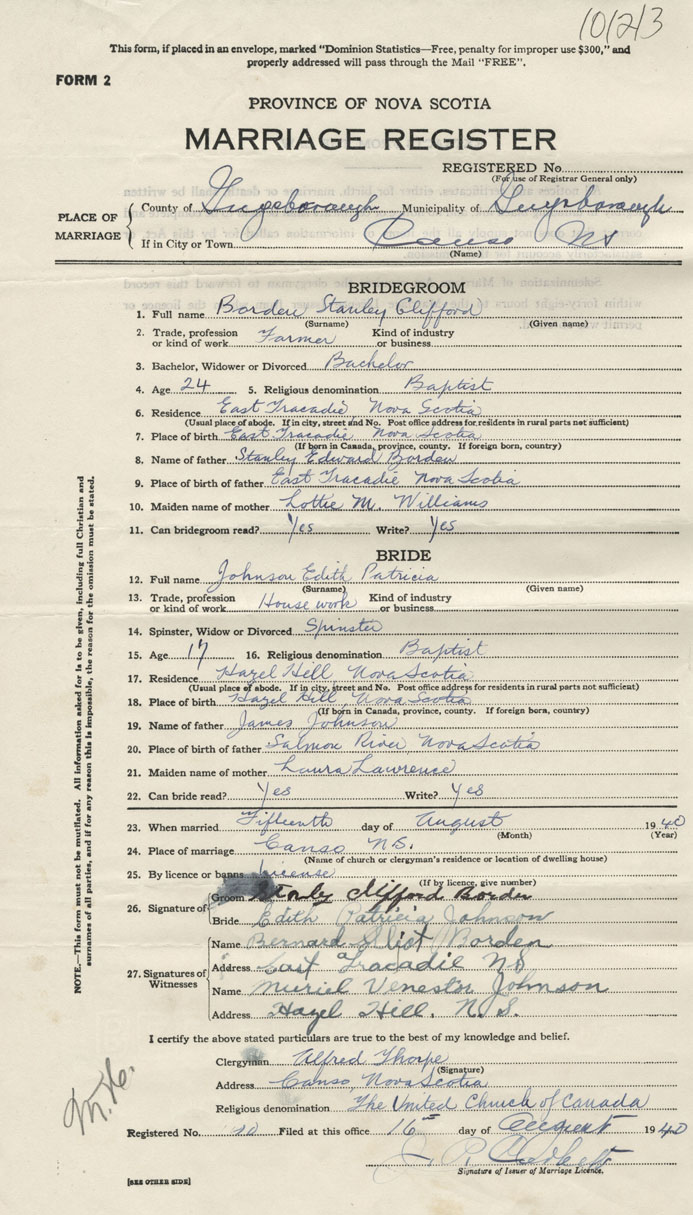 10/2/3
This form, if placed in an envelope, marked "Dominion Statistics—Free, penalty for improper use $300," and
properly addressed will pass through the Mail "FREE".
FORM 2
PROVINCE OF NOVA SCOTIA
MARRIAGE REGISTER
REGISTERED No.
(For use of Registrar General only)
PLACE OF MARRIAGE
County of Guysborough Municipality of Guysborough
If in City or Town Canso NS
(Name)
BRIDEGROOM
1. Full name Borden Stanley Clifford
(Surname) (Given name)
2. Trade, profession or kind of work Farmer Kind of industry or business
3. Bachelor, Widower or Divorced Bachelor
4. Age 24 5. Religious denomination Baptist
6. Residence East Tracadie Nova Scotia
(Usual place of abode. If in city, street and No. Post office address for residents in rural parts not sufficient)
7. Place of birth East Tracadie Nova Scotia
(If born in Canada, province, county. If foreign born, country)
8. Name of father Stanley Edward Borden
9. Place of birth of father East Tracadie Nova Scotia
10. Maiden name of mother Lottie M. Williams
11. Can bridegroom read? Yes Write? Yes
BRIDE
12. Full name Johnson Edith Patricia
(Surname) (Given name)
13. Trade, profession or kind of work House work Kind of industry or business
14. Spinster, Widow or Divorced Spinster
15. Age 17 16. Religious denomination Baptist
17. Residence Hazel Hill Nova Scotia
(Usual place of abode. If in city, street and No. Post office address for residents in rural parts not sufficient)
18. Place of birth Hazel Hill, Nova Scotia
(If born in Canada, province, county. If foreign born, country)
19. Name of father James Johnson
20. Place of birth of father Salmon River, Nova Scotia
21. Maiden name of mother Laura Lawrence
22. Can bride read? Yes Write? Yes
23. When married Fifteenth day of August 1940
(Month) (Year)
24. Place of marriage Canso N.S.
(Name of church or clergyman's residence or location of dwelling house)
25. By licence or banns License
(If by licence, give number)
26. Signature of
Groom Stanly Clifford Borden
Bride Edith Patricia Johnson
27. Signatures of Witnesses
Name Bernard Borden
Address East Tracadie NS
Name Muriel Johnson
Address Hazel Hill, N.S.
I certify the above stated particulars are true to the best of my knowledge and belief.
Clergyman Alfred Thorpe
(Signature)
Address Canso, Nova Scotia
Religious denomination The United Church of Canada
Registered No. 10 Filed at this office 16 day of August 1940
Signature of Issuer of Marriage Licence.
[SEE OTHER SIDE]
NOTE.—This form must not be mutilated. All information asked for is to be given, including full Christian and
surnames of all parties, and if for any reason this is impossible, the reason for the omission must be stated.